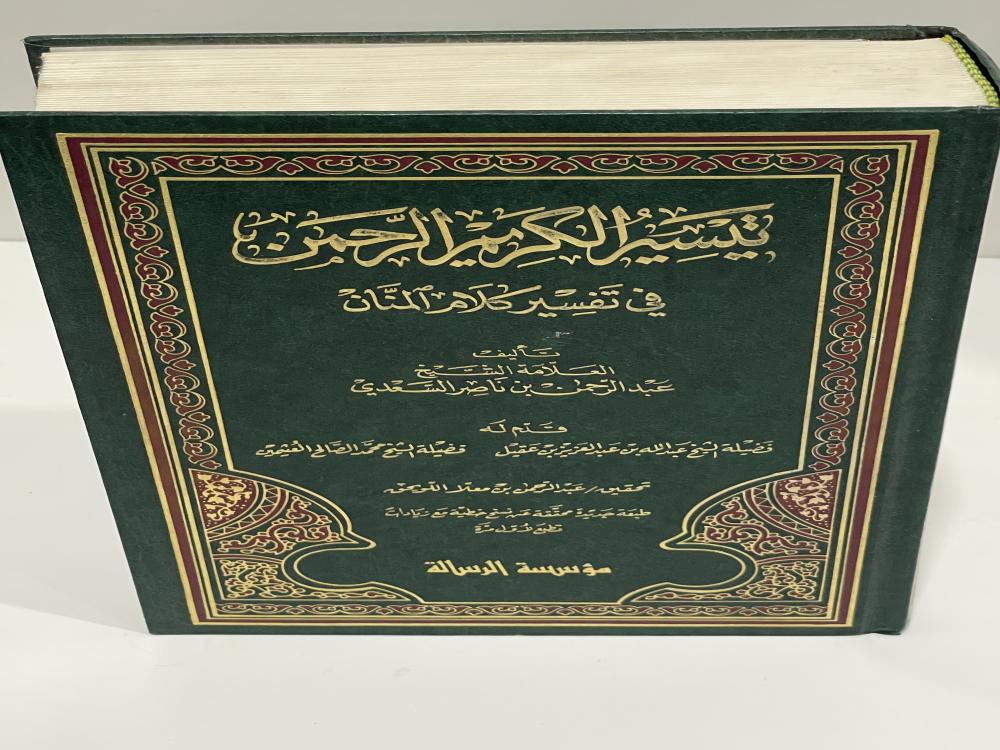 تيسير الكريم الرحمن
في تفسير كلام المنان
تأليف
العلامة الشيخ
عبد الرحمن بن ناصر السعدي
قدم له
فضيلة الشيخ عبد الله بن عبد العزيز بن عقيل فضيلة الشيخ محمد الصالح العثيمين
تحقيق/ عبد الرحمن بن معلا اللويحق
طبعة جديدة محققة على نسخ خطية مع زيادات
تطبع لأول مرة
مؤسسة الرسالة